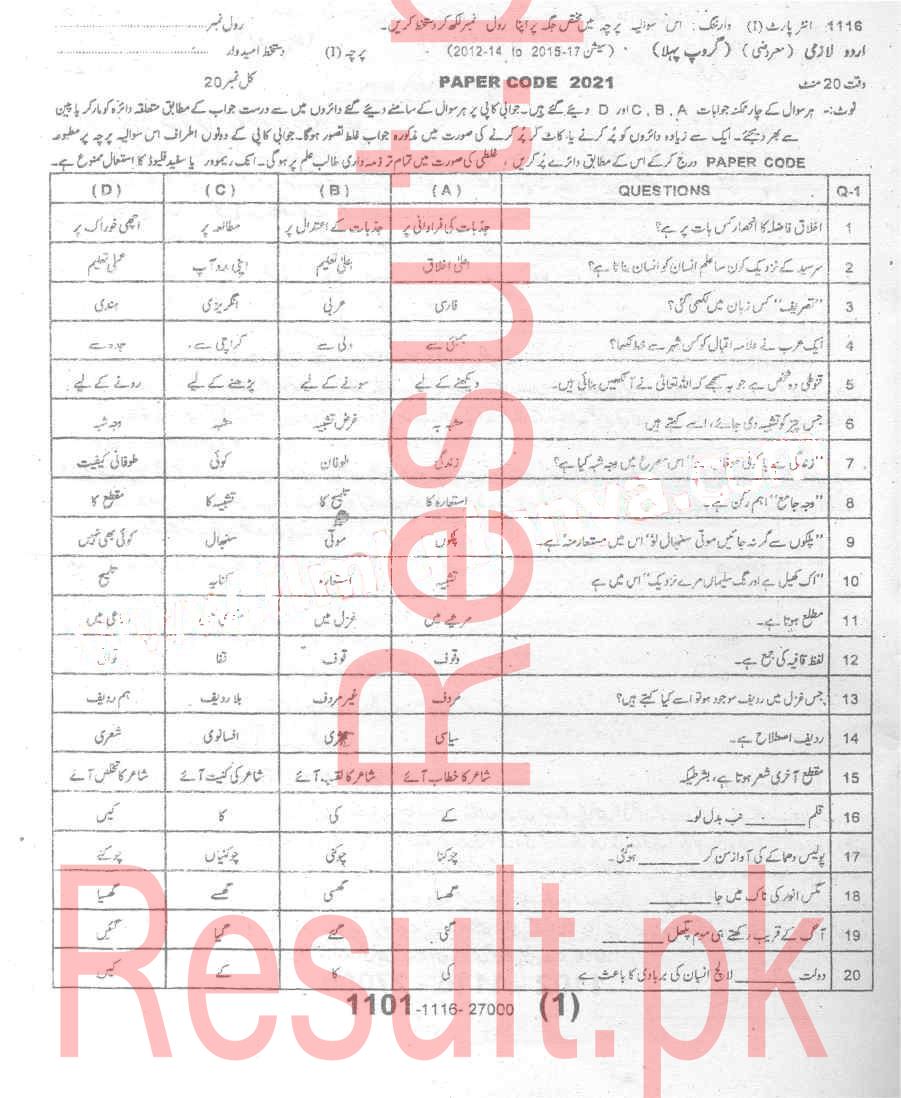 1116 انٹر پارٹ (I) وارننگ: اس سوالیہ پرچہ میں مختص جگہ پر اپنا رول نمبر لکھ کر دستخط کریں۔ رول نمبر
اردو لازمی (معروضی) (گروپ پہلا) (سیشن 2012-14 to 2015-17) پرچہ (I) دستخط امیدوار
وقت 20 منٹ PAPER CODE 2021 کل نمبر 20
نوٹ:- ہر سوال کے چار ممکنہ جوابات A ، B ، C اور D دیے گئے ہیں۔ جوابی کاپی پر ہر سوال کے سامنے دیے گئے دائروں میں سے درست جواب کے مطابق متعلقہ دائرہ کو مارکر یا پین
سے بھر دیجئے۔ ایک سے زیادہ دائروں کو پُر کرنے یا کاٹ کر پُر کرنے کی صورت میں مذکورہ جواب غلط تصور ہوگا۔ جوابی کاپی کے دونوں اطراف اس سوالیہ پرچہ پر مطبوعہ
PAPER CODE درج کر کے اس کے مطابق دائرے پُر کریں، غلطی کی صورت میں تمام تر ذمہ داری طالب علم پر ہوگی۔ انک ریموور یا سفید فلیوڈ کا استعمال ممنوع ہے۔
Q-1 QUESTIONS (A) (B) (C) (D)
1 اخلاق فاضلہ کا انحصار کس بات پر ہے؟ جذبات کی فراوانی پر جذبات کے اعتدال پر مطالعہ پر اچھی خوراک پر
2 سرسید کے نزدیک کون سا علم انسان کو انسان بناتا ہے؟ اعلیٰ اخلاق اعلیٰ تعلیم اپنی مدد آپ عملی تعلیم
3 "تصریف" کس زبان میں لکھی گئی؟ فارسی عربی انگریزی ہندی
4 ایک عرب نے علامہ اقبال کو کس شہر سے خط لکھا؟ بمبئی سے دلی سے کراچی سے جدہ سے
5 قنوطی وہ شخص ہے جو یہ سمجھے کہ اللہ تعالیٰ نے آنکھیں بنائی ہیں۔ دیکھنے کے لیے سونے کے لیے پڑھنے کے لیے رونے کے لیے
6 جس چیز کو تشبیہ دی جائے، اسے کہتے ہیں مشبہ بہ غرض تشبیہ مشبہ وجہ شبہ
7 "زندگی ہے یا کوئی طوفان ہے" اس مصرع میں وجہ شبہ کیا ہے؟ زندگی طوفان کوئی طوفانی کیفیت
8 "وجہ جامع" اہم رکن ہے۔ استعارہ کا تلمیح کا تشبیہ کا مقطع کا
9 "پلکوں سے گر نہ جائیں موتی سنبھال لو" اس میں مستعار منہ ہے۔ پلکوں موتی سنبھال کوئی بھی نہیں
10 "اک کھیل ہے اورنگ سلیماں مرے نزدیک" اس میں ہے تشبیہ استعارہ کنایہ تلمیح
11 مطلع ہوتا ہے۔ مرثیے میں غزل میں میں
12 لفظ قافیہ کی جمع ہے۔ وقوف قوف قفا قوافی
13 جس غزل میں ردیف موجود ہو تو اسے کیا کہتے ہیں؟ مردف غیر مردف بلا ردیف ہم ردیف
14 ردیف اصطلاح ہے۔ سیاسی افسانوی شعری
15 مقطع آخری شعر ہوتا ہے، بشرطیکہ شاعر کا خطاب آئے شاعر کا لقب آئے شاعر کی کنیت آئے شاعر کا تخلص آئے
16 قلم ______ نب بدل لو۔ کے کی کا کیں
17 پولیس دھماکے کی آواز سن کر ______ ہوگئی۔ چوکنا چوکنی چوکنیاں چوکنے
18 مگس انور کی ناک میں جا ______ گھسا گھسی گھسے گھسیا
19 آگ کے قریب رکھتے ہی موم پگھل ______ گئی گئے گیا گئیں
20 دولت ______ لالچ انسان کی بربادی کا باعث ہے کی کا کے کیں
1101-1116-27000 (1)
Result.pk